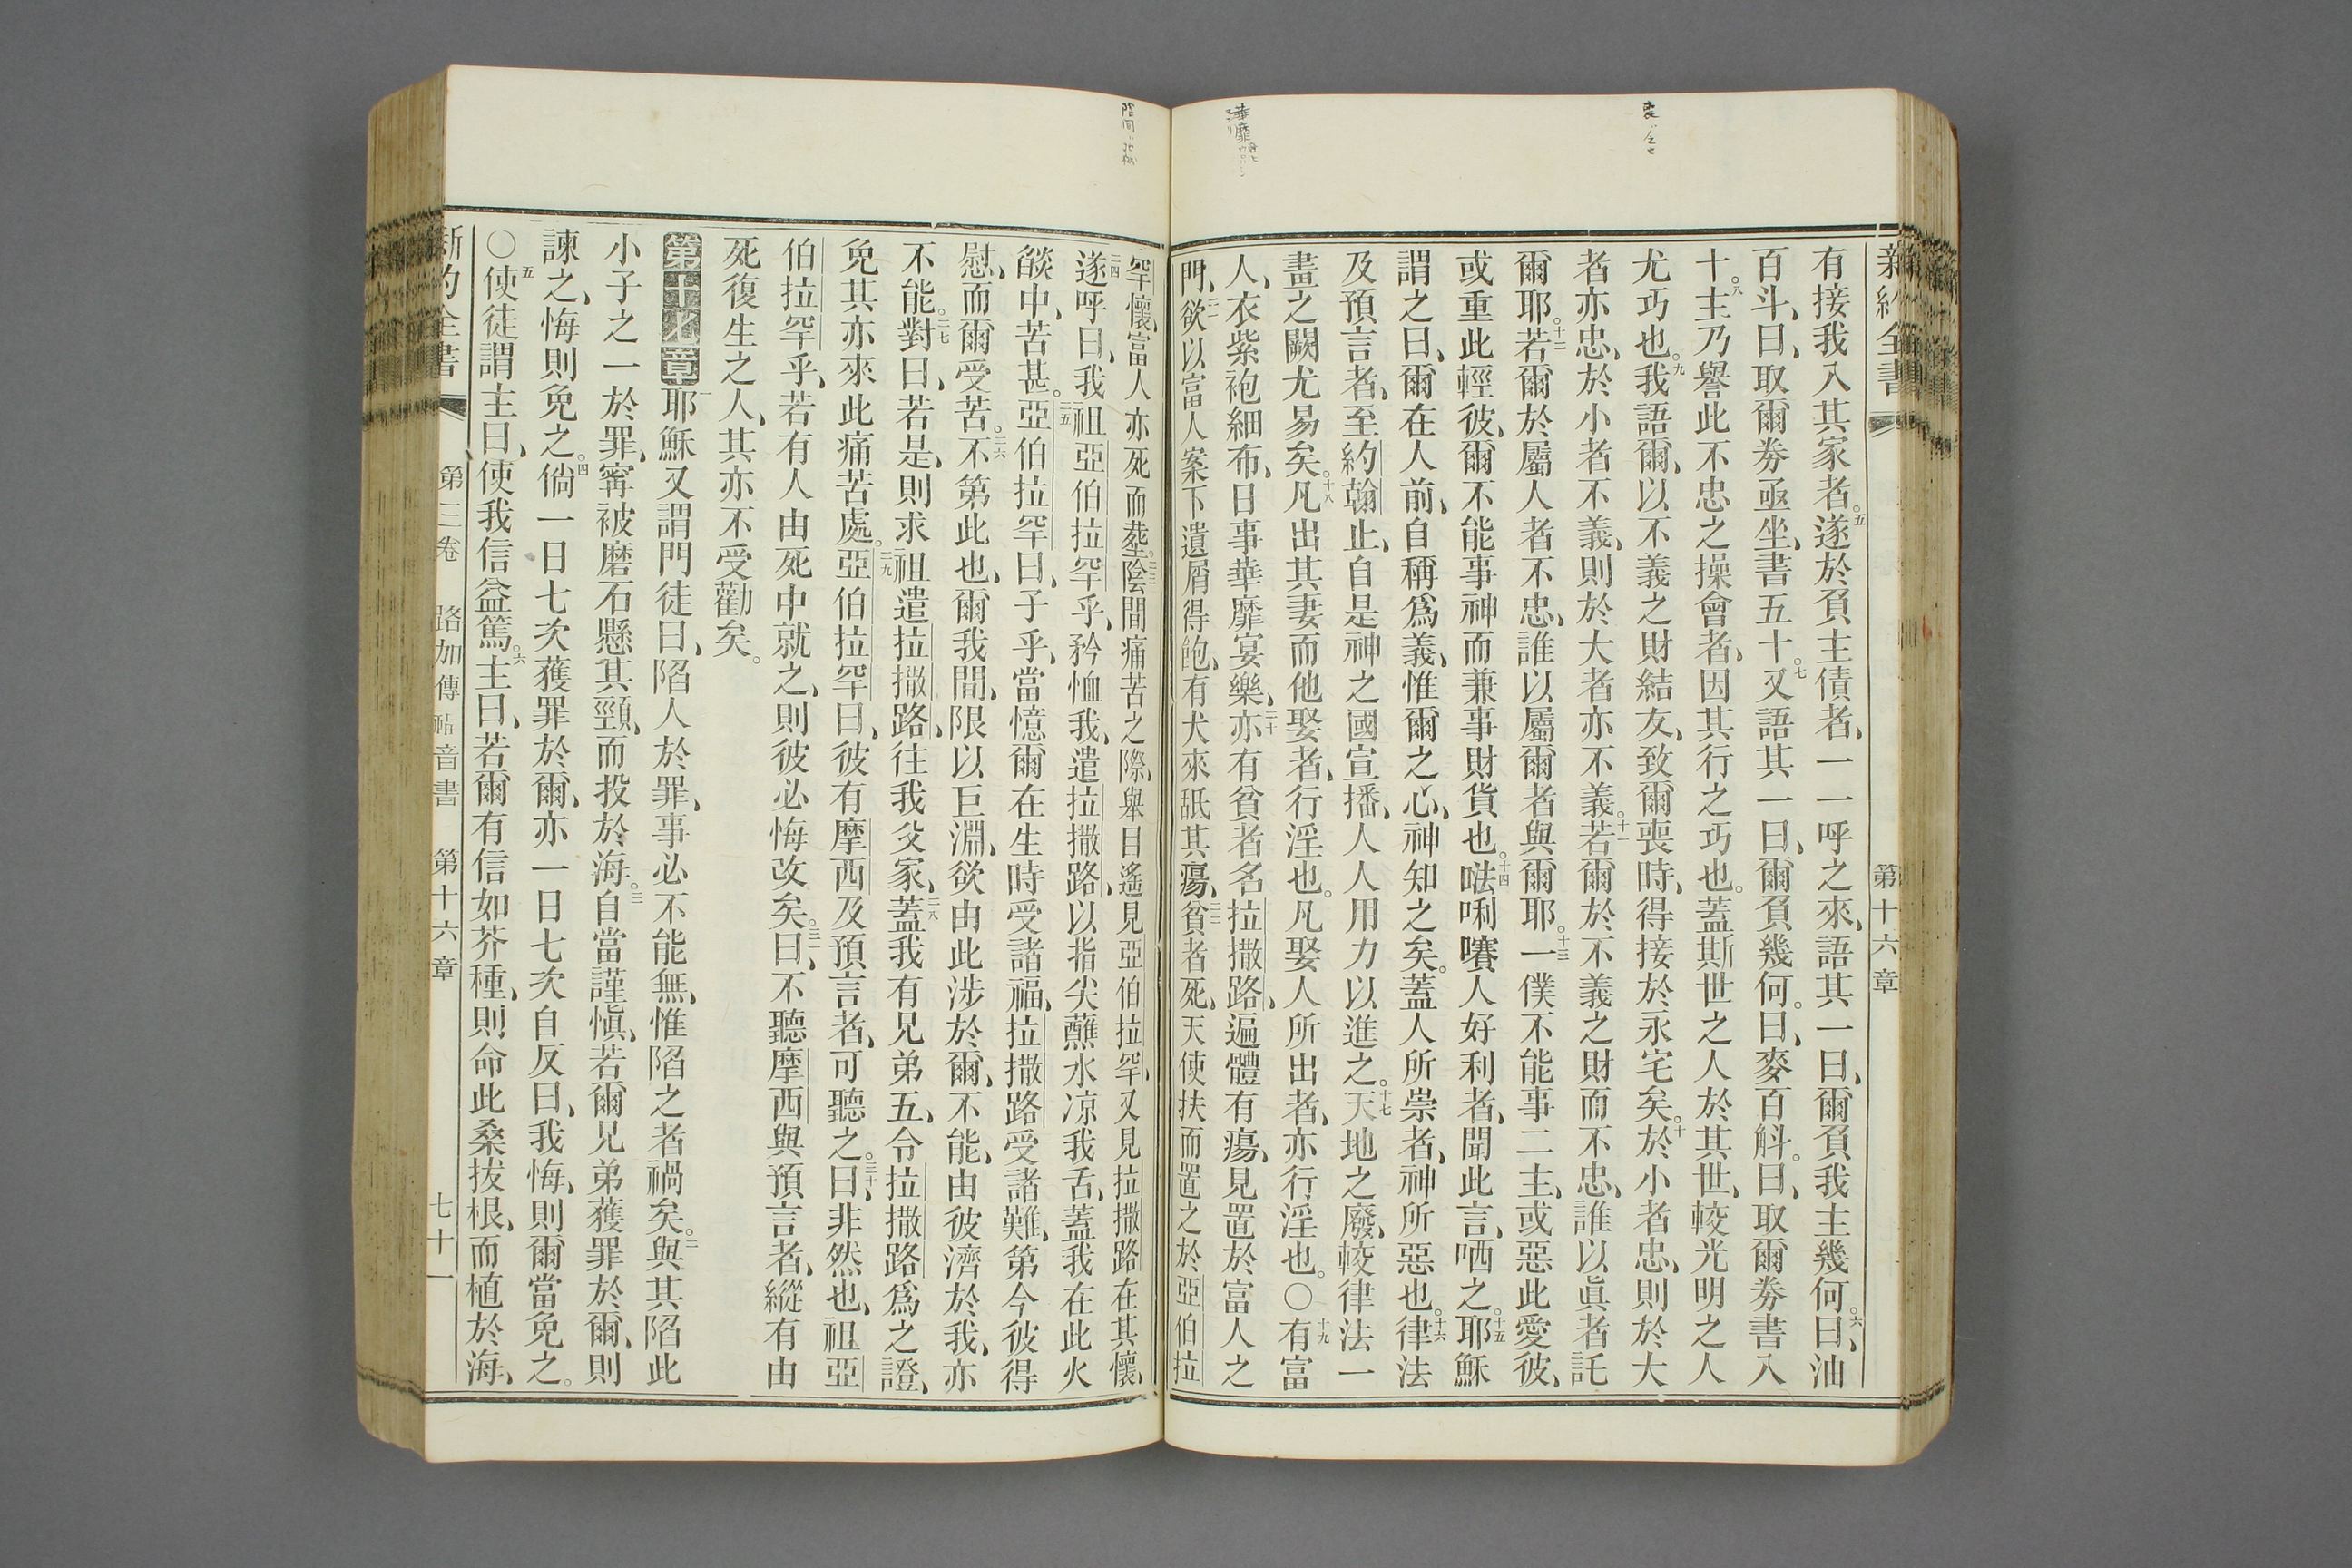 新約全書 第十六章
有接我入其家者。五遂於負主債者、一一呼之來、語其一曰、爾負我主幾何。六曰、油
百斗、曰、取爾券亟坐、書五十。七又語其一曰、爾負幾何。曰、麥百斛。曰、取爾券書八
十。八主乃譽此不忠之操會者、因其行之巧也。蓋斯世之人於其世、較光明之人
尤巧也。九我語爾、以不義之財結友、致爾喪時、得接於永宅矣。十於小者忠、則於大
者亦忠、於小者不義、則於大者亦不義。十一若爾於不義之財而不忠、誰以眞者託
爾耶。十二若爾於屬人者不忠、誰以屬爾者與爾耶。十三一僕不能事二主、或惡此愛彼、
或重此輕彼、爾不能事神而兼事財貨也。十四𠵽唎㘔人好利者、聞此言、哂之。十五耶穌
謂之曰、爾在人前、自稱爲義、惟爾之心、神知之矣。蓋人所崇者、神所惡也。十六律法
及預言者、至約翰止、自是神之國宣播、人人用力以進之。十七天地之廢、較律法一
畫之闕尤易矣。十八凡出其妻而他娶者、行淫也。凡娶人所出者、亦行淫也。〇十九有富
人、衣紫袍細布、日事華靡宴樂、二十亦有貧者名拉撒路、遍體有瘍、見置於富人之
門、二一欲以富人案下遺屑得飽、有犬來舐其瘍、二二貧者死、天使扶而置之於亞伯拉
罕懷、富人亦死而葬。二三陰間痛苦之際、舉目遙見亞伯拉罕、又見拉撒路在其懷、
二四遂呼曰、我祖亞伯拉罕乎、矜恤我、遣拉撒路、以指尖蘸水凉我舌、蓋我在此火
燄中、苦甚。二五亞伯拉罕曰、子乎、當憶爾在生時受諸福、拉撒路受諸難、第今彼得
慰、而爾受苦。二六不第此也、爾我間、限以巨淵、欲由此涉於爾、不能、由彼濟於我、亦
不能。二七對曰、若是、則求祖遣拉撒路、往我父家、二八蓋我有兄弟五、令拉撒路爲之證、
免其亦來此痛苦處。二九亞伯拉罕曰、彼有摩西及預言者、可聽之。三十曰、非然也、祖亞
伯拉罕乎、若有人由死中就之、則彼必悔改矣。三一曰、不聽摩西與預言者、縱有由
死復生之人、其亦不受勸矣。
第十七章一耶穌又謂門徒曰、陷人於罪、事必不能無、惟陷之者禍矣。二與其陷此
小子之一於罪、寗被磨石懸其頸、而投於海。三自當謹愼、若爾兄弟獲罪於爾、則
諫之、悔則免之。四倘一日七次獲罪於爾、亦一日七次自反曰、我悔、則爾當免之。
〇五使徒謂主曰、使我信益篤。六主曰、若爾有信如芥種、則命此桑拔根、而植於海、
新約全書 第三卷 路加傳福音書 第十六章 七十一